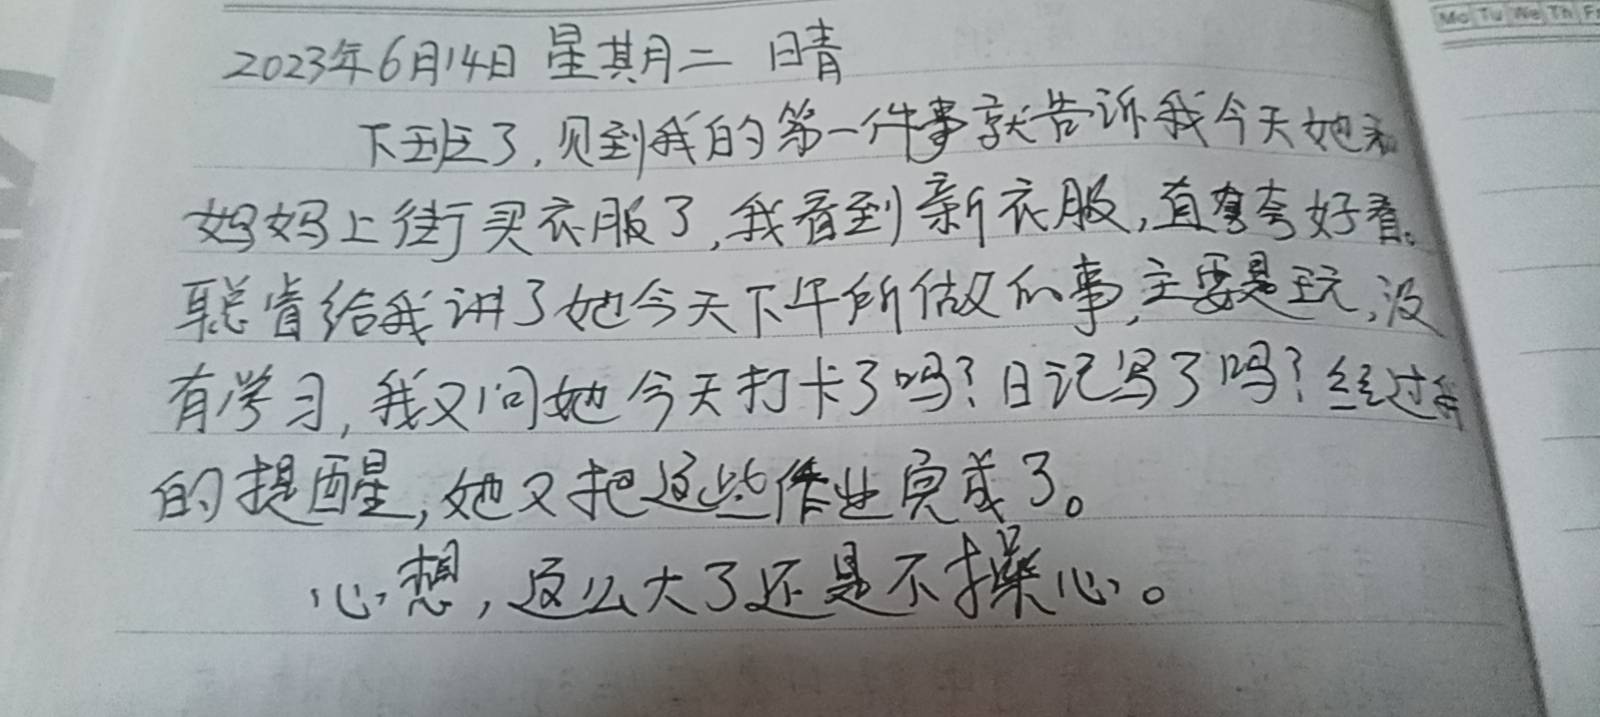 Mo Tu We Th Fr
2023年6月14日 星期二 晴
下班了,见到我的第一件事就告诉我今天她和
妈妈上街买衣服了,我看到新衣服,直夸好看。
聪睿给我讲了她今天下午所做的事,主要是玩,没
有学习,我又问她今天打卡了吗?日记写了吗?经过我
的提醒,她又把这些作业完成了。
心想,这么大了还是不操心。